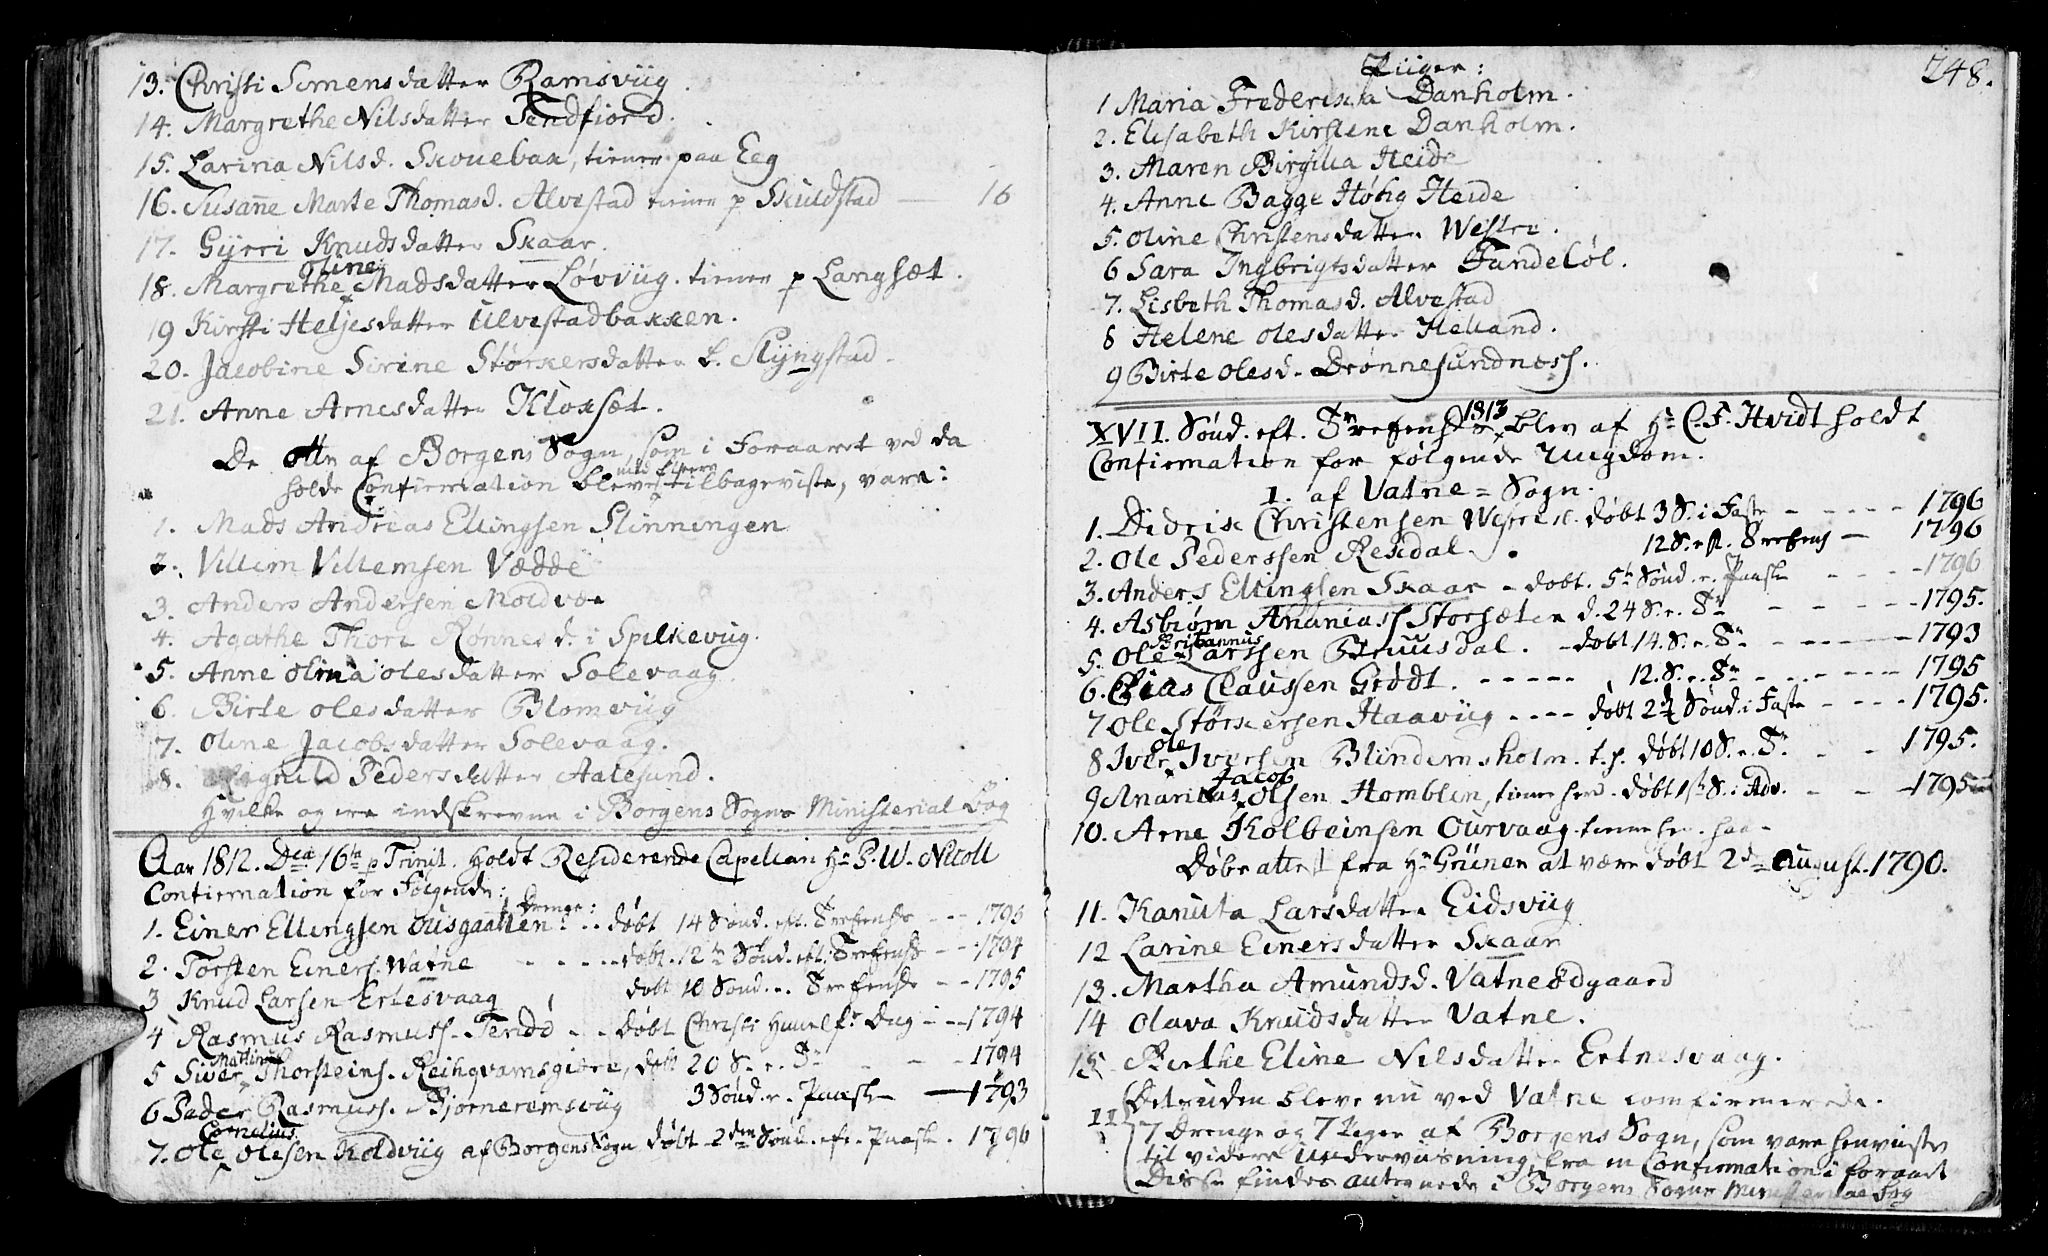 13. Christi Simensdatter Ramsviig.
14. Margrethe Nilsdatter Tendfiord.
15. Larina Nilsd. Skouebak, tiener paa Eeg
16. Susañe Marte Thomasd. Alvestad tiener p Skuldstad — 16
17. Gyrri Knudsdatter Skaar.
18. Margrethe Oline Madsdatter Løvviig. tiener p Langsæt.
19 Kirsti Heljesdatter Ulvestadbakken.
20. Jacobine Sirine Størkersdatter L. Slÿngstad.
21. Anne Arnesdatter Kloksæt.
De otte af Borgens Sogn, som i Foraaret ved da
holdte Confirmation bleve med fleere tilbageviste, vare:
1. Mads Andreas Ellingsen Slinningen
2. Villem Villemsen Vædde
3. Anders Andersen Moldvær
4. Agathe Thore Rønnesd. i Spilkeviig.
5. Anne Olina Olesdatter Solevaag.
6. Birte Olesdatter Blomviig
7. Oline Jacobsdatter Solevaag.
8. Ragnild Pedersdatter Aalesund.
Hvilke og ere indskrevne i Borgens Sogns Ministerial Bog
Aar 1812. Dca 16ta p Trinit. holdt Residerende Capellan Hr P. W. Nicoll
Confirmation for Følgende:
Drenge:
1. Einer Ellingsen Ousgaatten .. døbt 14 Sønd. eft. Trefensds --- 1795
2. Torsten Einers. Watne ----- døbt. 12te Sønd. eft. Trefensds --- 1794
3 Knud Larsen Ertesvaag døbt 10 Sønd. e. Trefensds -- 1795
4 Rasmus Rasmuss. Tendø -- døbt Christi Himelf. Dag --- 1794
5 Siver Martinus Thorsteins. Reihqvamsgierre, døbt 20 S. e. Tr — 1794
6 Peder Rasmuss. Bjorneremsviig 3 Sønd. e. Paaske — 1793
7. Ole Cornelius Olesen Koldviig af Borgens Sogn døbt 2den Sønd. eft. Paaske. 1796
248.
Piiger:
1 Maria Frederikka Danholm.
2. Elisabeth Kirstene Danholm.
3. Maren Birgitta Heide
4. Anne Bagge Høÿg Heide
5. Oline Christensdatter Westre.
6 Sara Ingbrigtsdatter Tandeløl.
7. Lisbeth Thomasd. Alvestad
8 Helene Olesdatter Helland.
9 Birte Olesd. Drønnesundness.
XVII. Sønd. eft. Trefensds 1813 blev af Hr C. F. Hvidt holdt
Confirmation for følgende Ungdom.
I. af Vatne = Sogn.
1. Didrik Christensen Westre døbt 3 S. i Faste ----- 1796
2. Ole Pederssen Resdal. 12 S. eft. Trefens — 1796
3. Anders Ellingsen Skaar - døbt. 5te Sønd. e. Paaske ---- 1796
4. Asbiørn Ananiass Storsæter d. 24 S. e. Tr ---- 1795.
5. Ole Britannus Larssen Bruusdal. - døbt 14. S. e. Tr ------ 1793
6. Elias Claussen Grødt. ----- 12. S. e. Tr ------ 1795
7 Ole Størkersen Haaviig ---- døbt 2d Sønd. i Faste ---- 1795.
8 Iver Ole Iversen Blindemsholm. t. h. døbt 10 S. e. Tr --- 1795.
9 Ananias Jacob Olsen Homblen, tiener her. døbt 1ste S. i Adv. --- 1795
10. Arne Kolbeinsen Ourvaag tiener her.
Døbeattest fra Hr Grüner at være døbt 2d August. 1790.
11. Kanuta Larsdatter Eidsviig
12 Larine Einersdatter Skaar
13. Martha Amundsd. Vatneødgaard
14 Olava Knudsdatter Vatne.
15 Birthe Eline Nilsdatter Ertnesvaag.
II Desuden bleve nu ved Vatne comfirmerede.
7 Drenge og 7 Piger af Borgens Sogn, som vare henviiste
til videre Underviisning, fra en Confirmation i foraaret
Disse findes antegnede i Borgens Sogns Ministeriale Bog